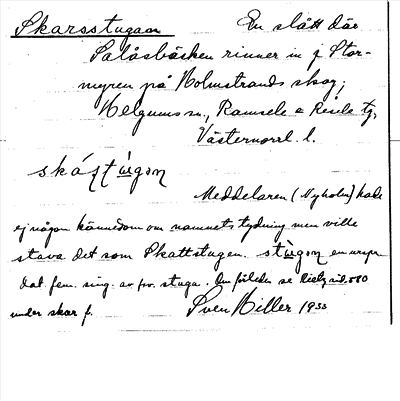 Skarsstugan
En slått där
Salåsbäcken rinner in i Stor-
myren på Holmstrands skog;
Helgums sn., Ramsele o Resele tg,
Västernorrl. l.
Meddelaren (Nyholm) hade
ej någon kännedom om namnets tydning men ville
stava det som Skattstugan. en urspr.
dat. fem. sing. av fsv. stuga. Om förleden se Rietz sid. 580
under skar f.
Sven Hiller 1933